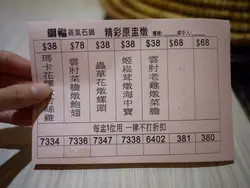 彌福 蒸氣石鍋 精彩原盅燉
$38 $78 $38 $38 $38 $68 $68
瑪卡花膠燉竹絲雞
雲肘菜膽燉鮑翅
蟲草花燉螺頭
姬崧茸燉海中寶
雲肘老雞燉菜膽
每盅1位用 一律不打折扣
7334 7336 7347 7338 6402 381 380